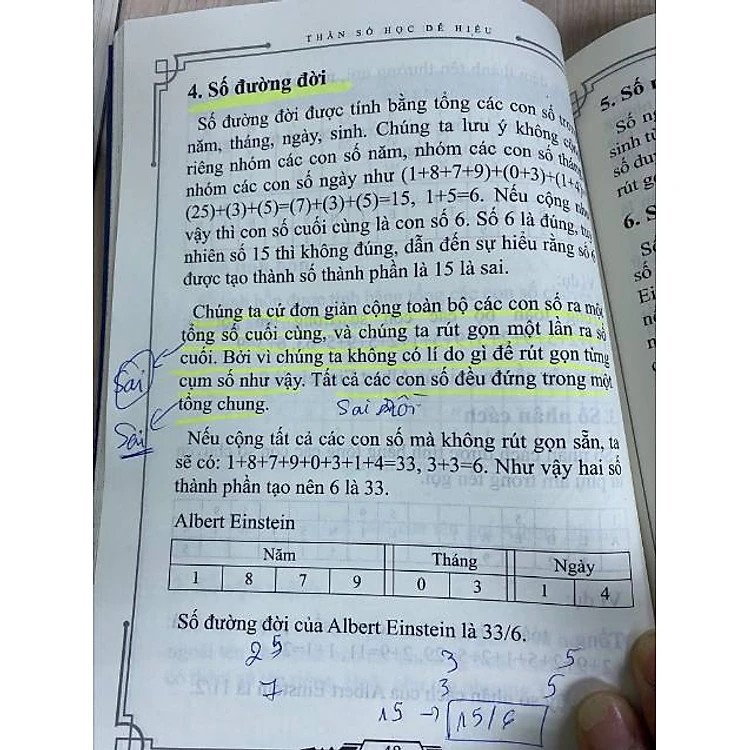 THẦN SỐ HỌC DỄ HIỂU
4. Số đường đời
Số đường đời được tính bằng tổng các con số
năm, tháng, ngày, sinh. Chúng ta lưu ý không
riêng nhóm các con số năm, nhóm các con số
nhóm các con số ngày như (1+8+7+9)+(0+3)+(1+4)
(25)+(3)+(5)=(7)+(3)+(5)=15, 1+5=6. Nếu cộng
vậy thì con số cuối cùng là con số 6. Số 6 là đúng,
nhiên số 15 thì không đúng, dẫn đến sự hiểu rằng số 6
được tạo thành số thành phần là 15 là sai.
Chúng ta cứ đơn giản cộng toàn bộ các con số ra một
tổng số cuối cùng, và chúng ta rút gọn một lần ra số
cuối. Bởi vì chúng ta không có lí do gì để rút gọn từng
cụm số như vậy. Tất cả các con số đều đứng trong một
tổng chung.
Sai
Sai
Sai
Nếu cộng tất cả các con số mà không rút gọn sẵn, ta
sẽ có: 1+8+7+9+0+3+1+4=33, 3+3=6. Như vậy hai số
thành phần tạo nên 6 là 33.
Albert Einstein
Năm Tháng Ngày
1 8 7 9 0 3 1 4
Số đường đời của Albert Einstein là 33/6.
25 3 5
7 3 5
15 → 15/6
5. Số
Số
sinh
số
rút
6. S
Số
số